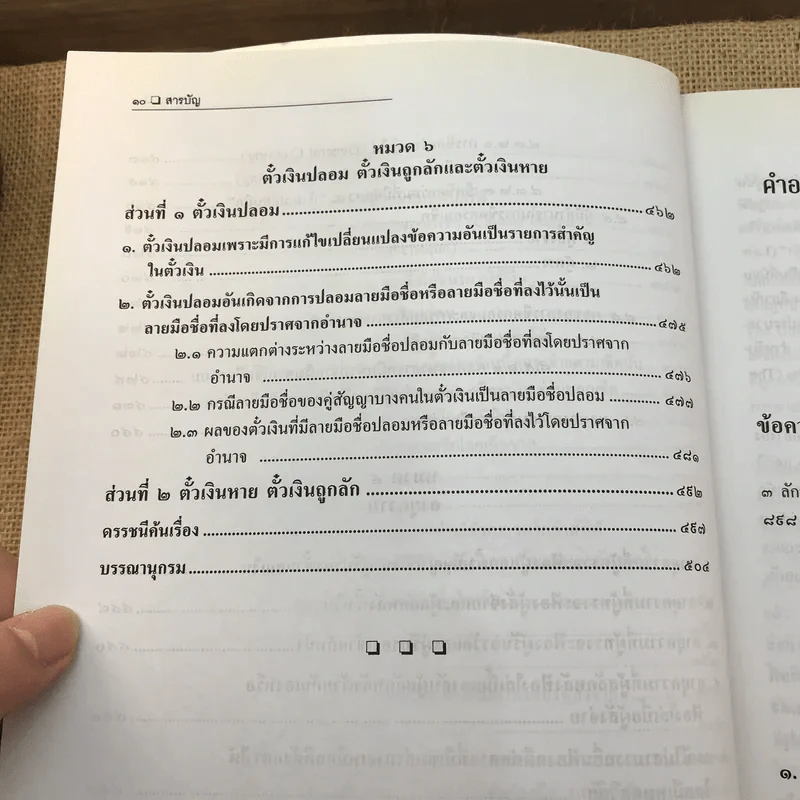 ๑๐ ❑ สารบัญ
หมวด ๖
ตั๋วเงินปลอม ตั๋วเงินถูกลักและตั๋วเงินหาย
ส่วนที่ ๑ ตั๋วเงินปลอม ๔๖๒
๑. ตั๋วเงินปลอมเพราะมีการแก้ไขเปลี่ยนแปลงข้อความอันเป็นรายการสำคัญ
ในตั๋วเงิน ๔๖๒
๒. ตั๋วเงินปลอมอันเกิดจากการปลอมลายมือชื่อหรือลายมือชื่อที่ลงไว้นั้นเป็น
ลายมือชื่อที่ลงโดยปราศจากอำนาจ ๔๗๕
๒.๑ ความแตกต่างระหว่างลายมือชื่อปลอมกับลายมือชื่อที่ลงโดยปราศจาก
อำนาจ ๔๗๖
๒.๒ กรณีลายมือชื่อของคู่สัญญาบางคนในตั๋วเงินเป็นลายมือชื่อปลอม ๔๗๗
๒.๓ ผลของตั๋วเงินที่มีลายมือชื่อปลอมหรือลายมือชื่อที่ลงไว้โดยปราศจาก
อำนาจ ๔๘๑
ส่วนที่ ๒ ตั๋วเงินหาย ตั๋วเงินถูกลัก ๔๙๒
ดรรชนีค้นเรื่อง ๔๙๗
บรรณานุกรม ๕๐๔
❑ ❑ ❑
๑.